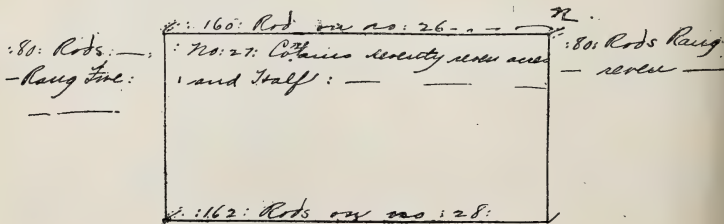 n.
:160: Rod on no: 26 - - -
:80: Rods: —:
- Rang Five:
: No: 27: Contains seventy seven acres
: and Half: — — —
:80: Rods Rang
— seven —
:162: Rods on no :28: